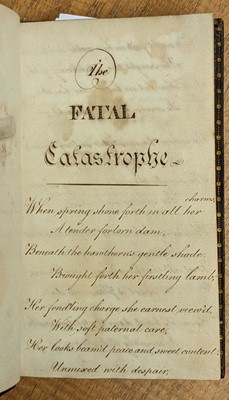 The
FATAL
Catastrophe
When spring shone forth in all her charms,
A tender forlorn dam,
Beneath the hawthorn's gentle shade
Brought forth her firstling lamb;
Her fondling charge she earnest view'd,
With soft paternal care,
Her looks beam'd peace and sweet content
Unmixed with despair.